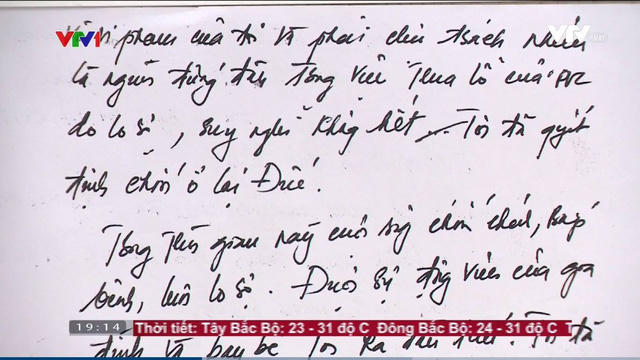 VTV1
VTV
vi phạm của tôi và phải chịu trách nhiệm
là người đứng đầu trong việc "thua lỗ" của PVC
do lo sợ, suy nghĩ không hết ... Tôi đã quyết
định trốn ở lại Đức.
Trong thời gian này cuộc sống trốn tránh, bấp
bênh, luôn lo sợ. Được sự động viên của gia
đình và bạn bè Tôi ra đầu thú. Tôi đã
19:14 Thời tiết: Tây Bắc Bộ: 23 - 31 độ C Đông Bắc Bộ: 24 - 31 độ C T